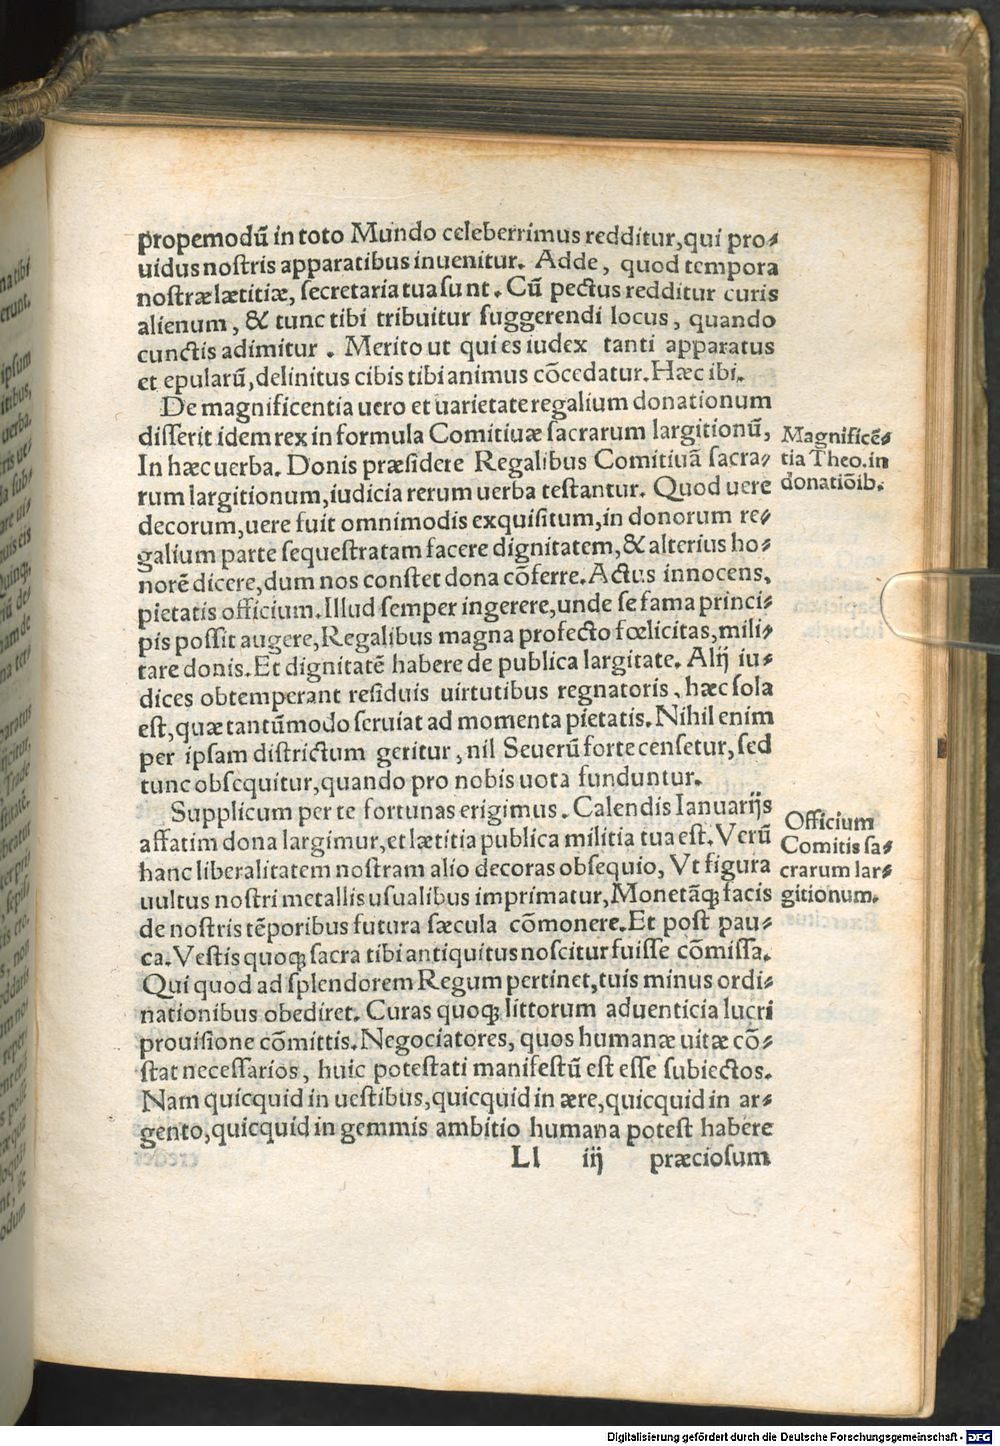 propemodū in toto Mundo celeberrimus redditur, qui pro⸗
uidus nostris apparatibus inuenitur. Adde, quod tempora
nostræ lætitiæ, secretaria tua sunt. Cū pectus redditur curis
alienum, & tunc tibi tribuitur suggerendi locus, quando
cunctis adimitur. Merito ut qui es iudex tanti apparatus
et epularū, delinitus cibis tibi animus cōcedatur. Hæc ibi.
De magnificentia uero et uarietate regalium donationum
disserit idem rex in formula Comitiuæ sacrarum largitionū,
In hæc uerba. Donis præsidere Regalibus Comitiuā sacra⸗
rum largitionum, iudicia rerum uerba testantur. Quod uere
decorum, uere fuit omnimodis exquisitum, in donorum re⸗
galium parte sequestratam facere dignitatem, & alterius ho⸗
norē dicere, dum nos constet dona cōferre. Actus innocens,
pietatis officium. Illud semper ingerere, unde se fama princi⸗
pis possit augere, Regalibus magna profecto fœlicitas, mili⸗
tare donis. Et dignitatē habere de publica largitate. Alij iu⸗
dices obtemperant residuis uirtutibus regnatoris, hæc sola
est, quæ tantūmodo seruiat ad momenta pietatis. Nihil enim
per ipsam districtum geritur, nil Seuerū forte censetur, sed
tunc obsequitur, quando pro nobis uota funduntur.
Supplicum per te fortunas erigimus. Calendis Ianuarijs
affatim dona largimur, et lætitia publica militia tua est. Verū
hanc liberalitatem nostram alio decoras obsequio, Vt figura
uultus nostri metallis usualibus imprimatur, Monetāq; facis
de nostris tēporibus futura sæcula cōmonere. Et post pau⸗
ca. Vestis quoq; sacra tibi antiquitus noscitur fuisse cōmissa.
Qui quod ad splendorem Regum pertinet, tuis minus ordi⸗
nationibus obediret. Curas quoq; littorum aduenticia lucri
prouisione cōmittis. Negociatores, quos humanæ uitæ cō⸗
stat necessarios, huic potestati manifestū est esse subiectos.
Nam quicquid in uestibus, quicquid in ære, quicquid in ar⸗
gento, quicquid in gemmis ambitio humana potest habere
Ll iij præciosum
Magnificē⸗
tia Theo. in
donatiōib.
Officium
Comitis sa⸗
crarum lar⸗
gitionum.
Digitalisierung gefördert durch die Deutsche Forschungsgemeinschaft - DFG